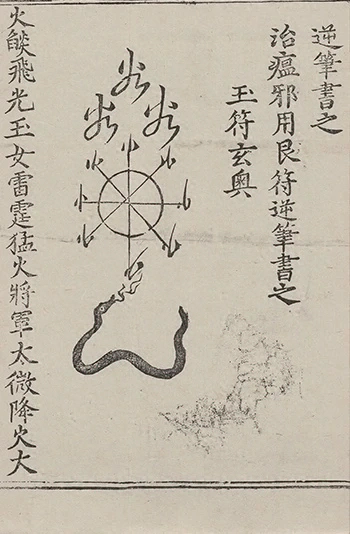 逆筆書之
治瘟邪用艮符逆筆書之
玉符玄奥
火燄飛光玉女雷霆猛火將軍太微降火大